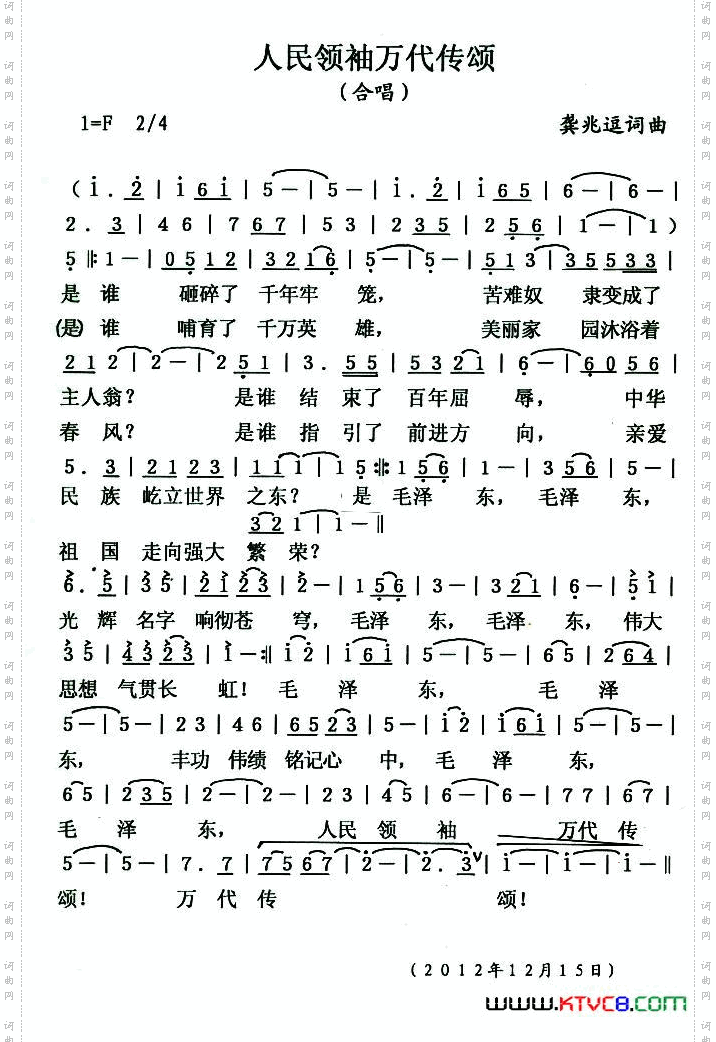 人民领袖万代传颂
（合唱）
1=F 2/4 龚兆逗词曲
（i . 2 | i 6 i | 5 — | 5 — | i . 2 | i 6 5 | 6 — | 6 — |
2 . 3 | 4 6 | 7 6 7 | 5 3 | 2 3 5 | 2 5 6 | 1 — | 1 ）
5 ‖: 1 — | 0 5 1 2 | 3 2 1 6 | 5 — | 5 — | 5 1 3 | 3 5 5 3 3 |
是 谁 砸碎了 千年牢 笼， 苦难奴 隶变成了
(是) 谁 哺育了 千万英 雄， 美丽家 园沐浴着
2 1 2 | 2 — | 2 5 1 | 3 . 5 5 | 5 3 2 1 | 6 — | 6 0 5 6 |
主人翁？ 是谁 结 束了 百年屈 辱， 中华
春 风？ 是谁 指 引了 前进方 向， 亲爱
5 . 3 | 2 1 2 3 | 1 1 1 | 1 5 :‖: 1 5 6 | 1 — | 3 5 6 | 5 — |
民 族 屹立世界 之东？ 是 毛泽 东， 毛泽 东，
3 2 1 | 1 — ‖
祖 国 走向强大 繁 荣？
6 . 5 | 3 5 | 2 1 2 3 | 2 — | 1 5 6 | 3 — | 3 2 1 | 6 — | 5 1 |
光 辉 名字 响彻苍 穹， 毛泽 东， 毛泽 东， 伟大
3 5 | 4 3 2 3 | 1 — :‖ i 2 | i 6 i | 5 — | 5 — | 2 5 | 2 6 4 |
思想 气贯长 虹！ 毛 泽 东， 毛 泽
5 — | 5 — | 2 3 | 4 6 | 6 5 2 3 | 5 — | 5 — | i 2 | i 6 i | 5 — | 5 — |
东， 丰功 伟绩 铭记心 中， 毛 泽 东，
6 5 | 2 3 5 | 2 — | 2 — | 2 3 | 4 5 | 6 — | 6 — | 7 7 | 6 7 |
毛 泽 东， 人民 领 袖 万代 传
5 — | 5 — | 7 . 7 | 7 5 6 7 | 2 — | 2 . 3 ∨ | i — | i — | i — | i — ‖
颂！ 万 代 传 颂！
（2012年12月15日）
www.KTVC8.com
词曲网